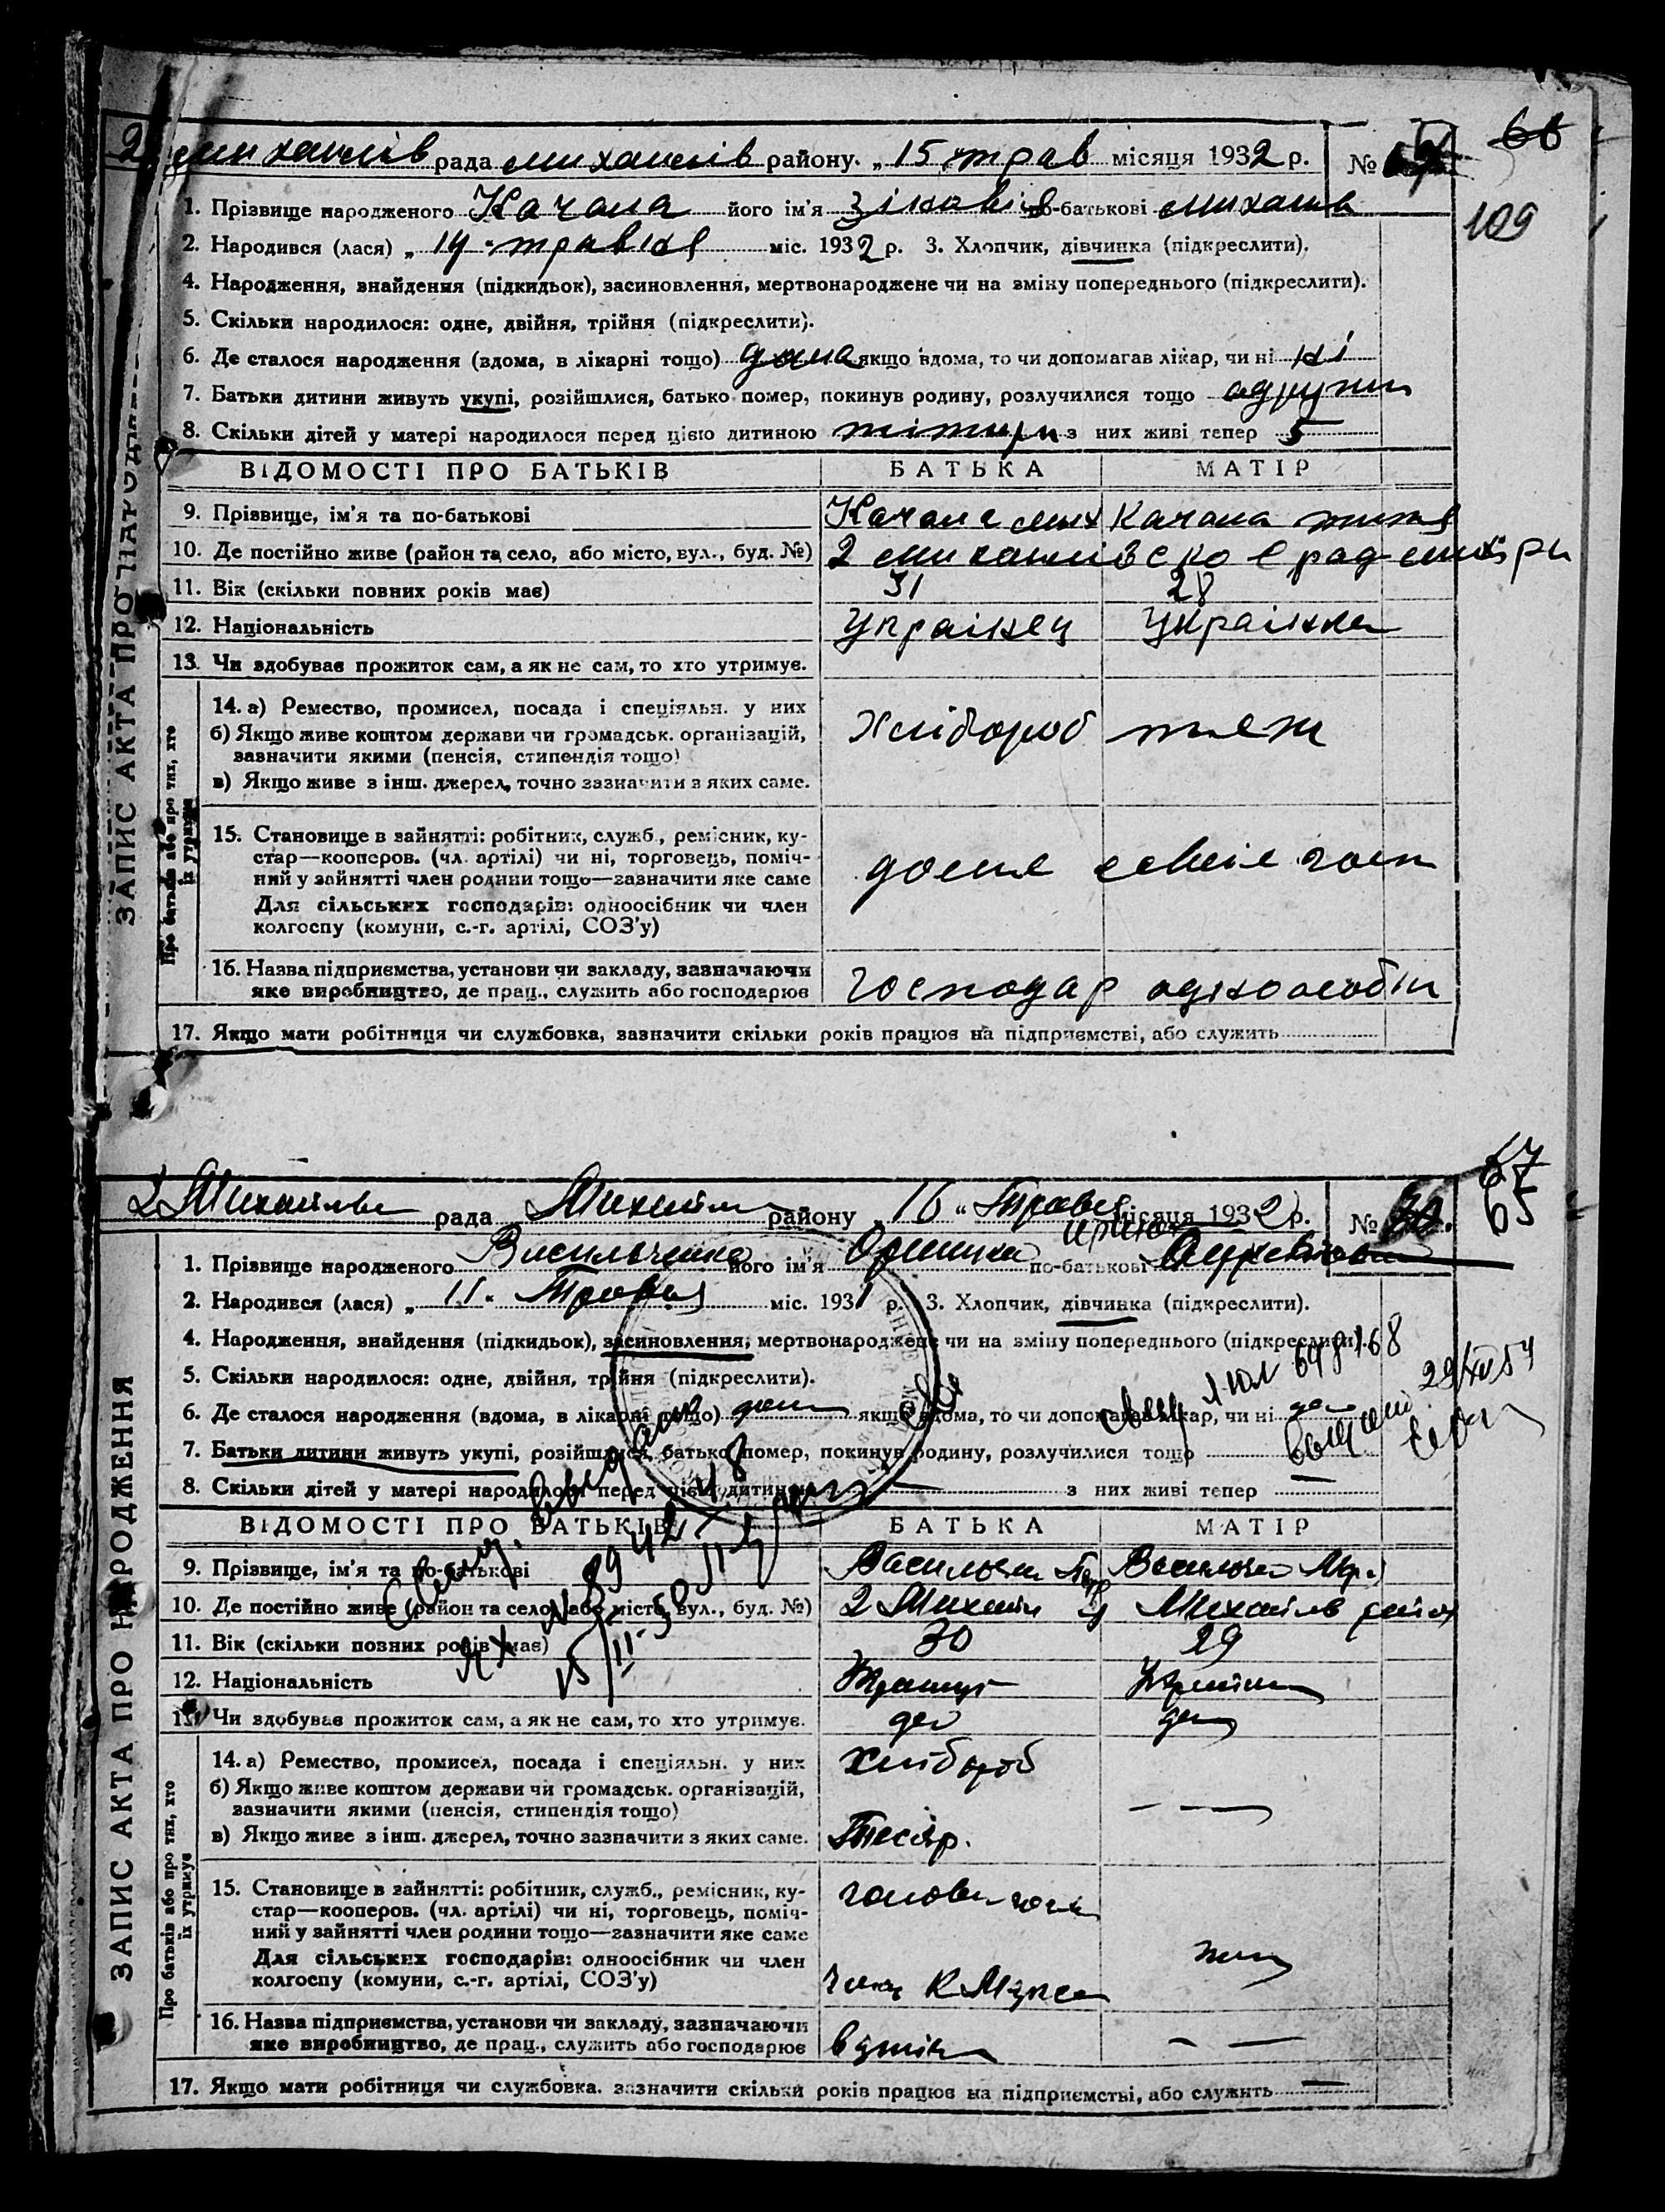 66
2 михайлів рада михайлів району. „ 15 трав місяця 1932 р. №
109
1. Прізвище народженого Качана його ім'я Зіновія по-батькові михайлів
2. Народився (лася) „ 14 " травня міс. 1932 р. 3. Хлопчик, дівчинка (підкреслити).
4. Народження, знайдення (підкидьок), засиновлення, мертвонароджене чи на зміну попереднього (підкреслити).
5. Скільки народилося: одне, двійня, трійня (підкреслити).
6. Де сталося народження (вдома, в лікарні тощо) дома якщо вдома, то чи допомагав лікар, чи ні ні
7. Батьки дитини живуть укупі, розійшлися, батько помер, покинув родину, розлучилися тощо
8. Скільки дітей у матері народилося перед цією дитиною з них живі тепер 5
ВІДОМОСТІ ПРО БАТЬКІВ БАТЬКА МАТІР
9. Прізвище, ім'я та по-батькові Качана мих Качана
10. Де постійно живе (район та село, або місто, вул., буд. №) 2 михайлівско рад
11. Вік (скільки повних років має) 31 28
12. Національність Українец Українка
13. Чи здобуває прожиток сам, а як не сам, то хто утримує.
14. а) Ремество, промисел, посада і спеціяльн. у них
б) Якщо живе коштом держави чи громадськ. організацій,
зазначити якими (пенсія, стипендія тощо)
в) Якщо живе з інш. джерел, точно зазначити з яких саме.
Хлібороб теж
15. Становище в зайнятті: робітник, служб., ремісник, ку-
стар—кооперов. (чл. артілі) чи ні, торговець, поміч-
ний у зайнятті член родини тощо—зазначити яке саме
Для сільських господарів: одноосібник чи член
колгоспу (комуни, с.-г. артілі, СОЗ'у)
16. Назва підприємства, установи чи закладу, зазначаючи
яке виробництво, де прац., служить або господарює
господар одноособін
17. Якщо мати робітниця чи службовка, зазначити скільки років працює на підприємстві, або служить
ЗАПИС АКТА ПРО НАРОДЖЕННЯ
Про батьків або про тих, хто
їх утримує
67
65
2 Михайлів рада Михайлів району „ 16 " Травня місяця 1932 р. №
1. Прізвище народженого Васильченко його ім'я по-батькові
2. Народився (лася) „ 11 " Травня міс. 1931 р. 3. Хлопчик, дівчинка (підкреслити).
4. Народження, знайдення (підкидьок), засиновлення, мертвонароджене чи на зміну попереднього (підкреслити).
5. Скільки народилося: одне, двійня, трійня (підкреслити).
6. Де сталося народження (вдома, в лікарні тощо) якщо вдома, то чи допомагав лікар, чи ні
7. Батьки дитини живуть укупі, розійшлися, батько помер, покинув родину, розлучилися тощо
8. Скільки дітей у матері народилося перед цією дитиною — з них живі тепер —
ВІДОМОСТІ ПРО БАТЬКІВ БАТЬКА МАТІР
9. Прізвище, ім'я та по-батькові Васильчен Васильчен
10. Де постійно живе (район та село, або місто, вул., буд. №) 2 Михайлів Михайлів район
11. Вік (скільки повних років має) 30 29
12. Національність Украинц Украинк
13. Чи здобуває прожиток сам, а як не сам, то хто утримує.
14. а) Ремество, промисел, посада і спеціяльн. у них
б) Якщо живе коштом держави чи громадськ. організацій,
зазначити якими (пенсія, стипендія тощо)
в) Якщо живе з інш. джерел, точно зазначити з яких саме.
Хлібороб
Тесляр.
15. Становище в зайнятті: робітник, служб., ремісник, ку-
стар—кооперов. (чл. артілі) чи ні, торговець, поміч-
ний у зайнятті член родини тощо—зазначити яке саме
Для сільських господарів: одноосібник чи член
колгоспу (комуни, с.-г. артілі, СОЗ'у)
голова госп
член К Маркса
16. Назва підприємства, установи чи закладу, зазначаючи
яке виробництво, де прац., служить або господарює
17. Якщо мати робітниця чи службовка, зазначити скільки років працює на підприємстві, або служить —
ЗАПИС АКТА ПРО НАРОДЖЕННЯ
Про батьків або про тих, хто
їх утримує